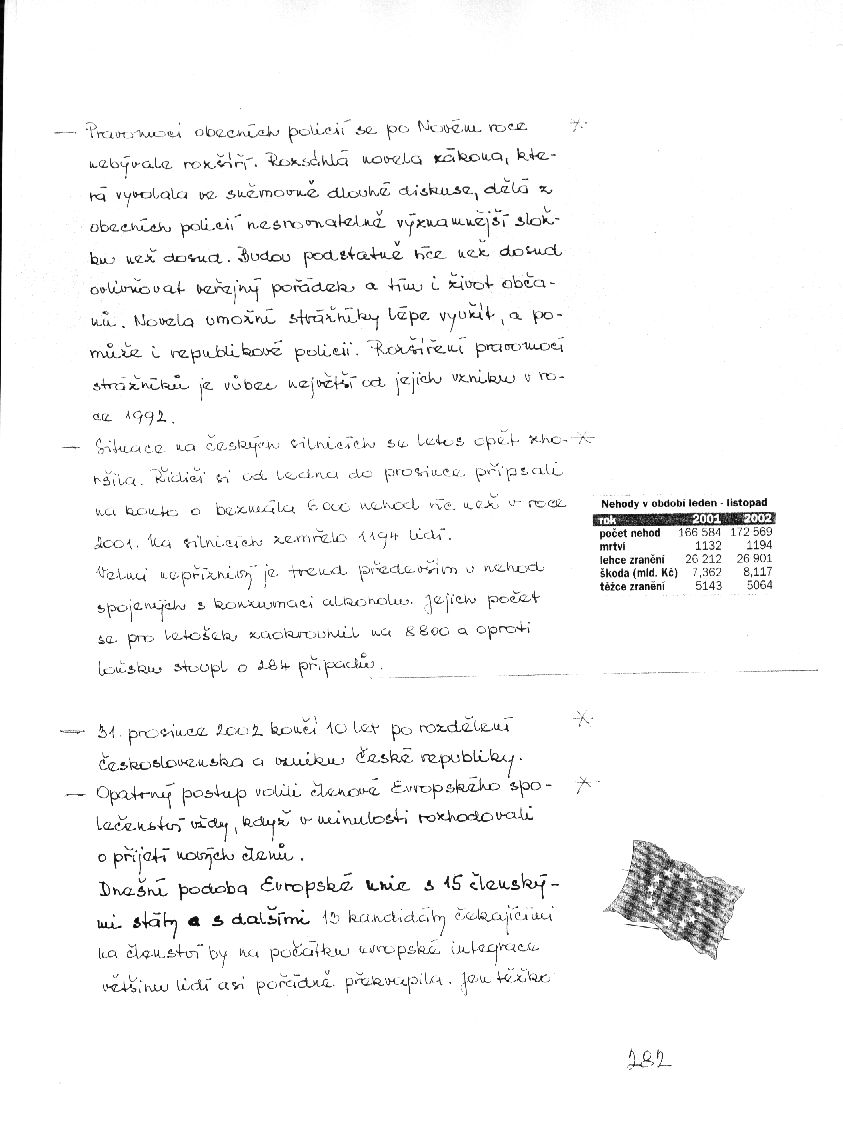 — Pravomoci obecních policií se po Novém roce
nebývale rozšíří. Rozsáhlá novela zákona, kte-
rá vyvolala ve sněmovně dlouhé diskuse, dělá z
obecních policií nesrovnatelně významnější slož-
ku než dosud. Budou podstatně více než dosud
ovlivňovat veřejný pořádek a tím i život obča-
nů. Novela umožní strážníky lépe využít, a po-
může i republikové policii. Rozšíření pravomocí
strážníků je vůbec největší od jejich vzniku v ro-
ce 1992.
— Situace na českých silnicích se letos opět zho-
ršila. Řidiči si od ledna do prosince připsali
na konto o bezmála 6000 nehod víc než v roce
2001. Na silnicích zemřelo 1194 lidí.
Velmi nepříznivý je trend především u nehod
spojených s konzumací alkoholu. Jejich počet
se pro letošek zaokrouhlil na 8800 a oproti
loňsku stoupl o 284 případů.
Nehody v období leden - listopad
rok 2001 2002
počet nehod 166 584 172 569
mrtví 1132 1194
lehce zranění 26 212 26 901
škoda (mld. Kč) 7,362 8,117
těžce zranění 5143 5064
— 31. prosince 2002 končí 10 let po rozdělení
Československa a vzniku České republiky.
— Opatrný postup volili členové Evropského spo-
lečenství vždy, když v minulosti rozhodovali
o přijetí nových členů.
Dnešní podoba Evropské unie s 15 členský-
mi státy a s dalšími 13 kandidáty čekajícími
na členství by na počátku evropské integrace
většinu lidí asi pořádně překvapila. Jen těžko
282